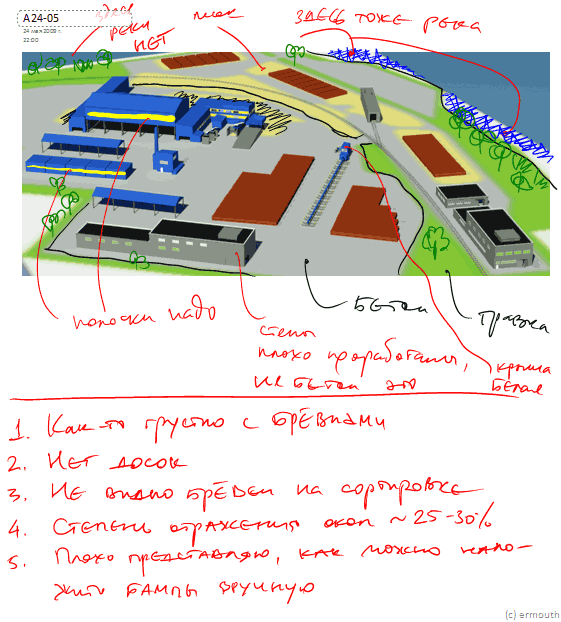 A24-05
24 мая 2009 г.
22:00
здесь
реки
нет
ЗДЕСЬ ТОЖЕ река
полоски надо
стены
плохо проработаны,
не бетон это
Бетон
Травка
крыша
белая
1. Как-то грустно с брёвнами
2. Нет досок
3. Не видно брёвен на сортировке
4. Степень отражения окон ~25-30%
5. Плохо представляю, как можно нало-
жить бампы вручную
(c) ermouth